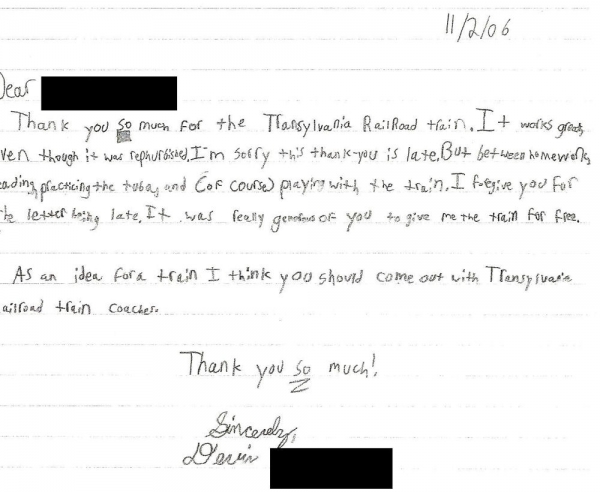 11/2/06
Dear
Thank you so much for the Transylvania Railroad train. It works great,
ven though it was rephurbished. I'm sorry this thank-you is late. But between homework,
eading, practicing the tuba, and (of course) playing with the train, I forgive you for
he letter being late. It was really generous of you to give me the train for free.
As an idea for a train I think you should come out with Transylvania
ailroad train coaches.
Thank you so much!
Sincerely,